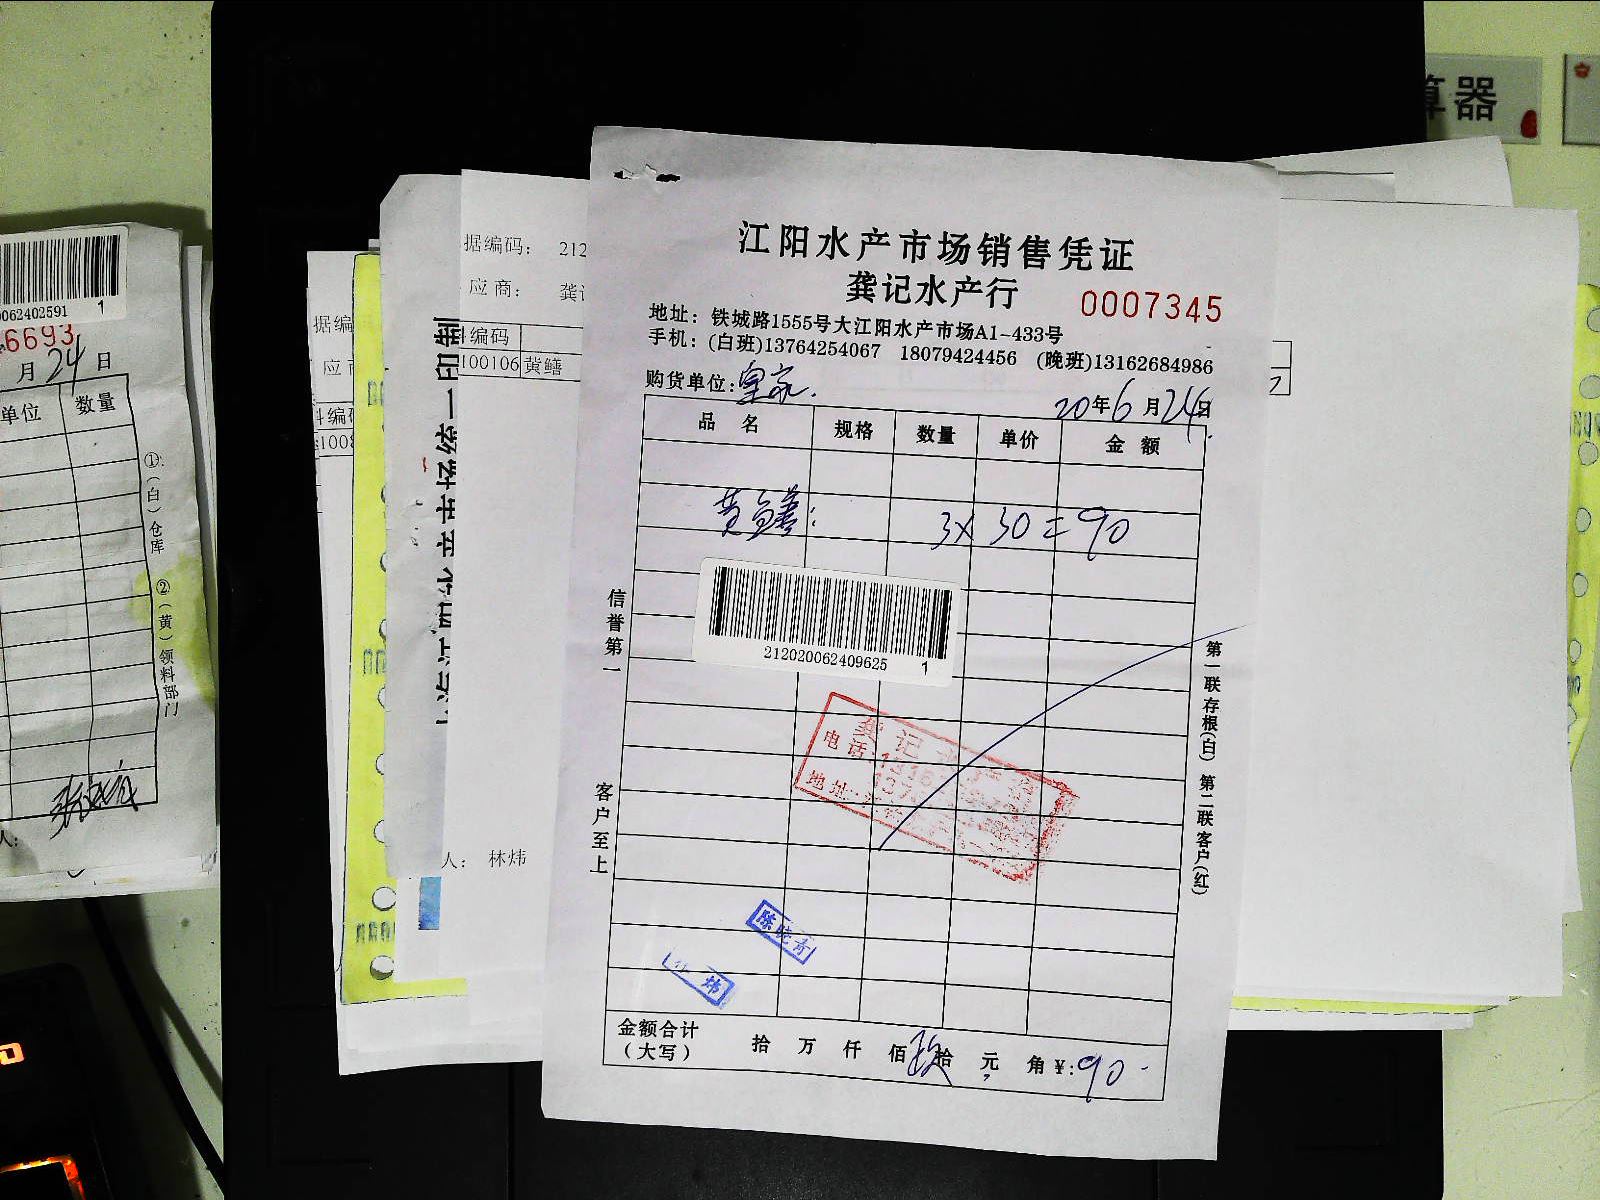 算器
江阳水产市场销售凭证
龚记水产行
0007345
地址：铁城路1555号大江阳水产市场A1-433号
手机：(白班)13764254067 18079424456 (晚班)13162684986
购货单位:皇家.
20年6月24日
品 名 规格 数量 单价 金 额
黄鳝: 3X 30=90
212020062409625 1
信誉第一
客户至上
第一联存根(白) 第二联客户(红)
龚记水产
电话:
地址:
陈
炜
金额合计（大写） 拾 万 仟 佰 玖拾 元 角 ¥:90-
据编码： 212
应商：
编码
100106 黄鳝
人： 林炜
据编
应
编码
1008
062402591 1
6693
月24日
单位 数量
①（白）仓库
②（黄）领料部门
人: